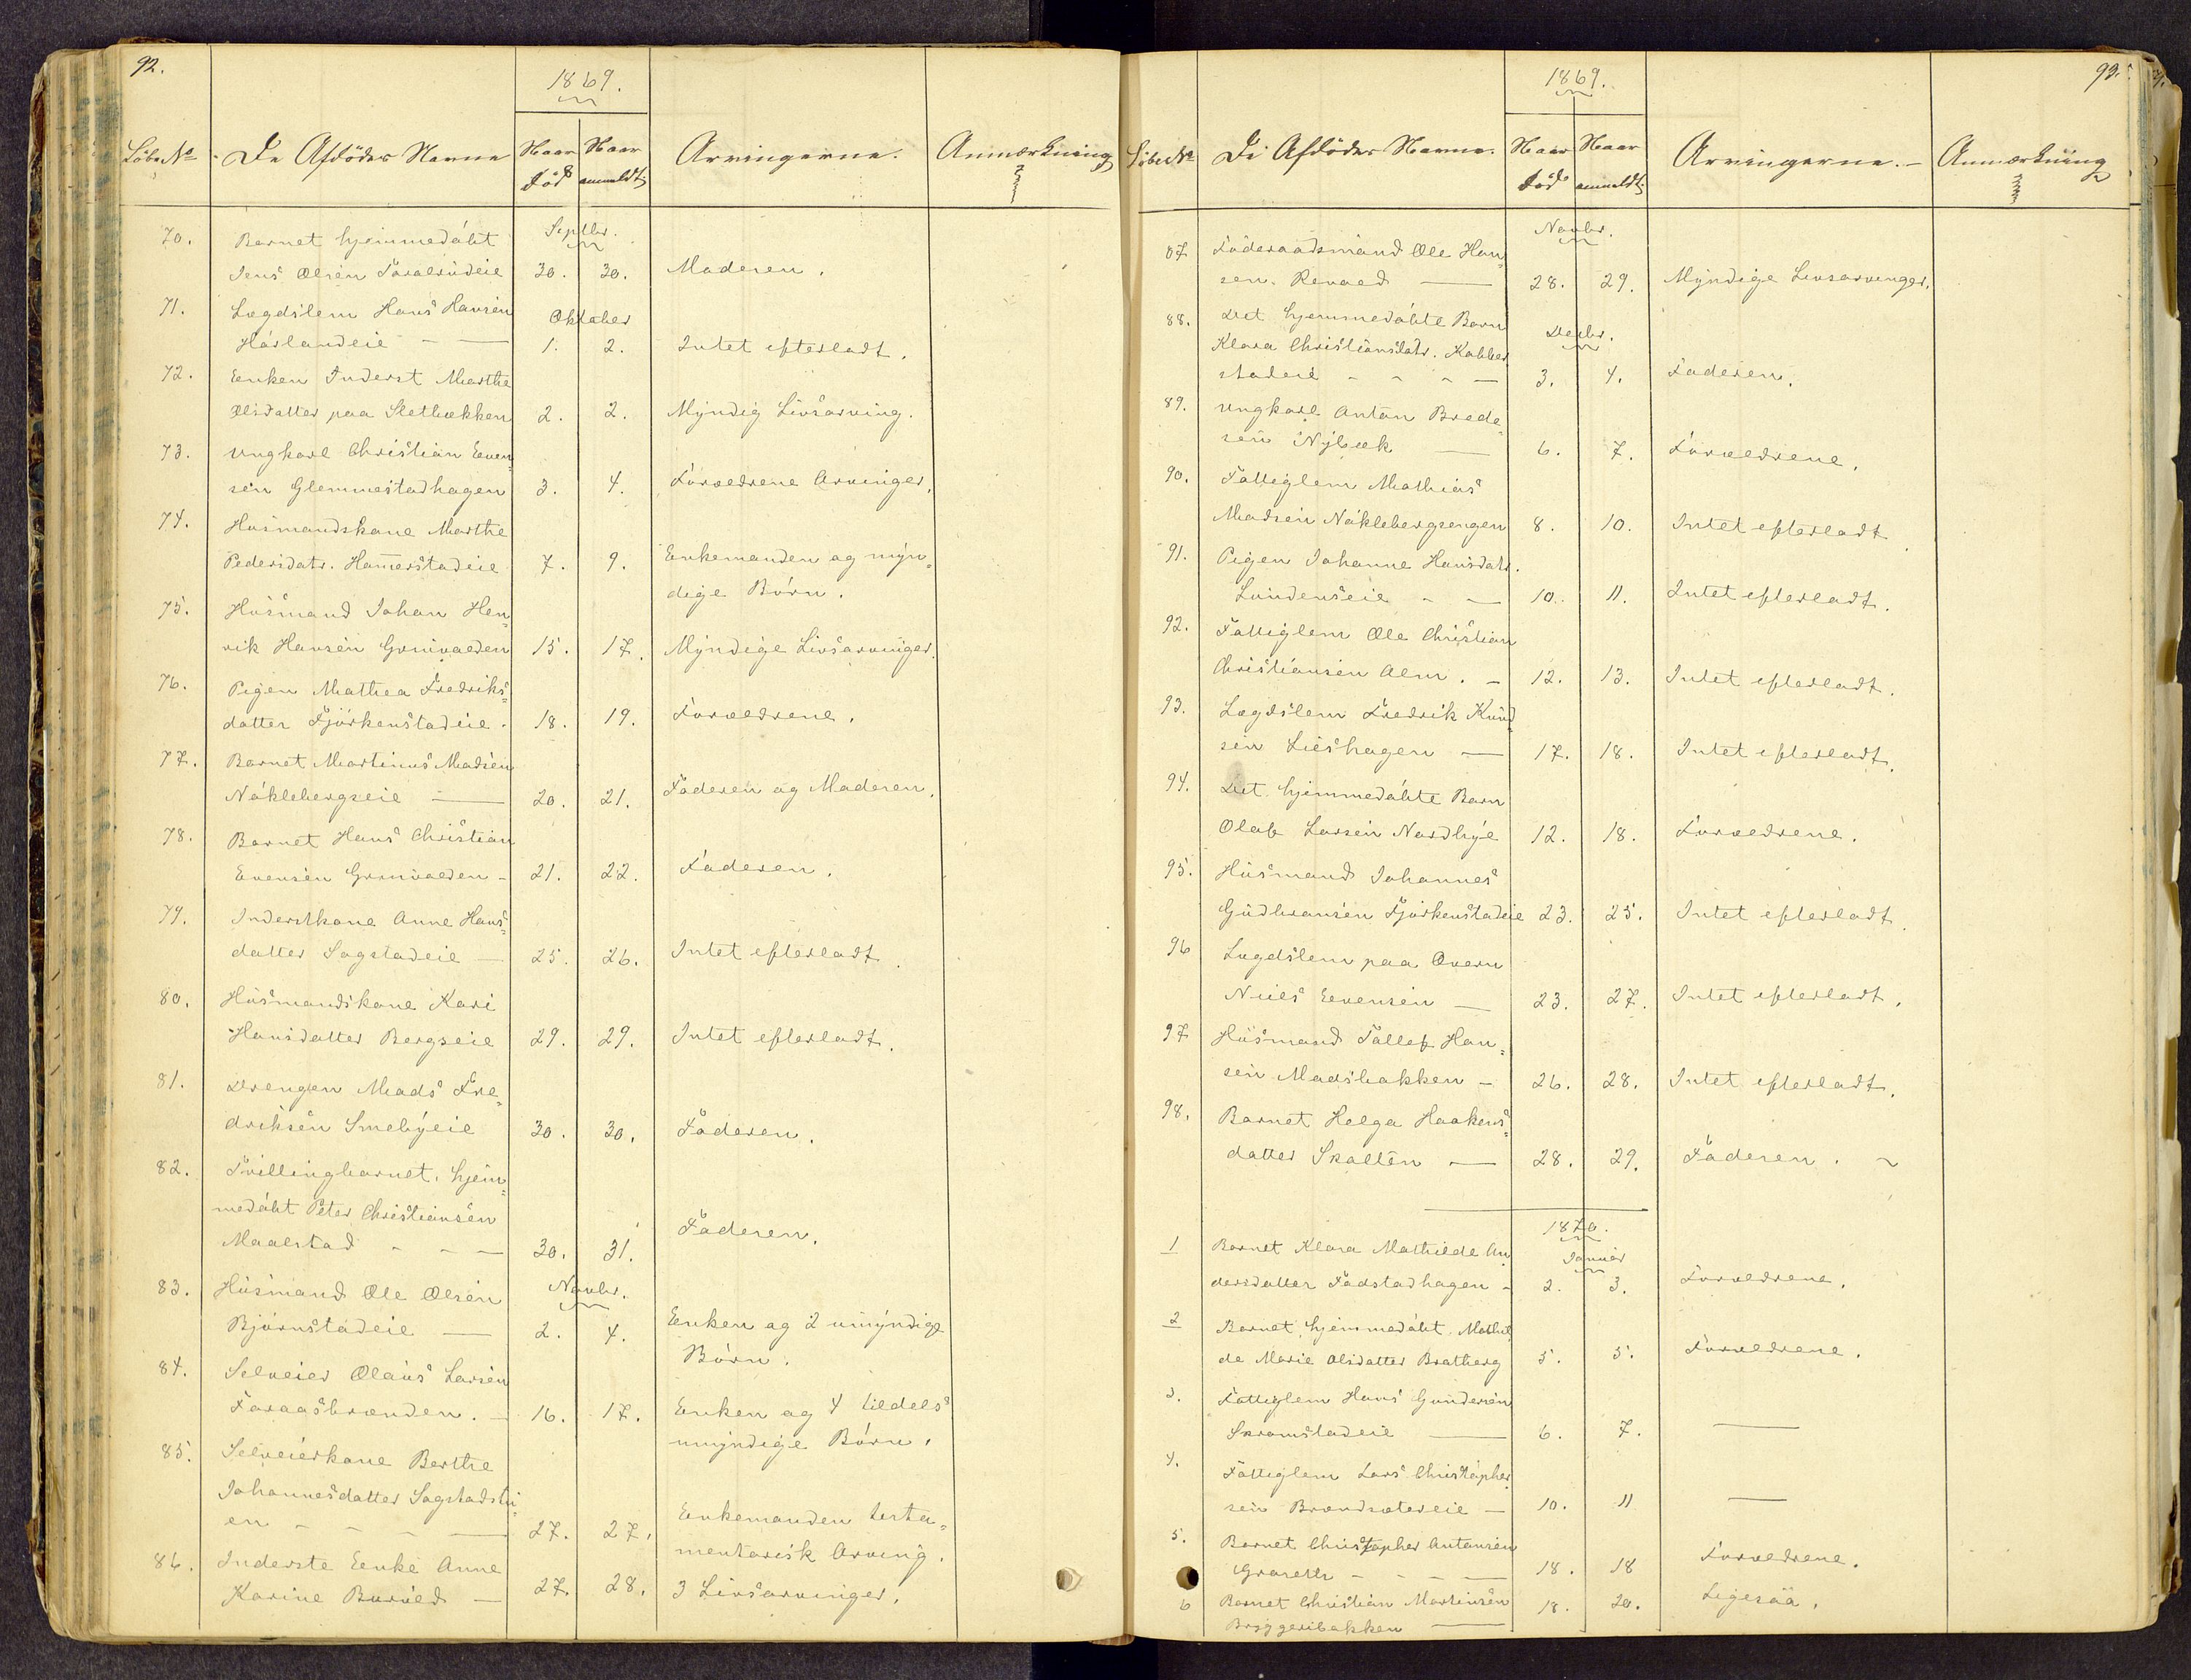 92.
1869.
Løbe No
De Afdødes Navne
Naar død
Naar anmeldt
Arvingerne.
Anmærkning
Septbr.
70. Barnet hjemmedøbt
Jens Olsen 30. 30. Moderen.
71. Lægdslem Hans Hansen
Oktober
Haslandeie 1. 2. Intet efterladt.
72. Enken Inderst Marthe
Olsdatter paa Sletbækken 2. 2. Myndig Livsarving.
73. Ungkarl Christian Even-
sen Glemmestadhagen 3. 4. Forældrene Arvinger.
74. Husmandskone Marthe
Pedersdatr. Hammerstadeie 7. 9. Enkemanden og myn-
dige Børn.
75. Husmand Johan Hen-
rik Hansen Grønvolden 15. 17. Myndige Livsarvinger.
76. Pigen Mathea Fredriks-
datter Fjørkenstadeie. 18. 19. Forældrene.
77. Barnet Martinus Madsen
Nøklebergseie 20. 21. Faderen og Moderen.
78. Barnet Hans Christian
Evensen 21. 22. Faderen.
79. Inderstkone Anne Hans-
datter Sagstadeie 25. 26. Intet efterladt.
80. Husmandskone Kari
Hansdatter Bergseie 29. 29. Intet efterladt.
81. Drengen Mads Fre-
driksen Smebyeie 30. 30. Faderen.
82. Tvillingbarnet, hjem-
medøbt Peter Christiansen
Maalstad 30. 31. Faderen.
83. Husmand Ole Olsen
Novbr.
Bjørnstadeie 2. 4. Enken og 2 umyndige
Børn.
84. Selveier Olaus Larsen
Faraasbrænden. 16. 17. Enken og 4 tildels
umyndige Børn.
85. Selveierkone Berthe
Johannesdatter Sagstadstu-
en 27. 27. Enkemanden testa-
mentarisk Arving.
86. Inderste Enke Anne
Karine 27. 28. 3 Livsarvinger.
93.
1869.
Løbe No
De Afdødes Navne.
Naar død
Naar anmeldt
Arvingerne.
Anmærkning
Novbr.
87 Føderaadsmand Ole Han-
sen 28. 29. Myndige Livsarvinger.
88. Det hjemmedøbte Barn
Decbr.
Klara Christiansdatr. Kobber-
stadeie 3. 4. Faderen.
89. Ungkarl Anton Brede-
sen Nybæk 6. 7. Forældrene.
90. Fattiglem Mathias
Madsen Nøklebergsengen 8. 10. Intet efterladt.
91. Pigen Johanne Hansdatr.
Lundenseie 10. 11. Intet efterladt.
92. Fattiglem Ole Christian
Christiansen Alm. 12. 13. Intet efterladt.
93. Lægdslem Fredrik Knud
sen Lieshagen 17. 18. Intet efterladt.
94. Det hjemmedøbte Barn
Olaf Larsen Nordbye 12. 18. Forældrene.
95. Husmand Johannes
Gudbransen Fjørkenstadeie 23. 25. Intet efterladt.
96 Lægdslem paa Overn
Niels Evensen 23. 27. Intet efterladt.
97 Husmand Tollef Han-
sen Madsbakken 26. 28. Intet efterladt.
98. Barnet Helga Haakens-
datter Skolten 28. 29. Faderen.
1870.
Januar
1 Barnet Klara Mathilde An-
dersdatter Fadstadhagen 2. 3. Forældrene.
2 Barnet, hjemmedøbt, Mathil-
de Marie Olsdatter Bratberg 5. 5. Forældrene.
3. Fattiglem Hans Gundersen
Skramstadeie 6. 7.
4. Fattiglem Lars Christopher
sen Brændsætereie 10. 11
5. Barnet Christopher Antonsen
18. 18 Forældrene.
6 Barnet Christian Martinsen 18. 20. Ligesaa.
Bryggeribakken